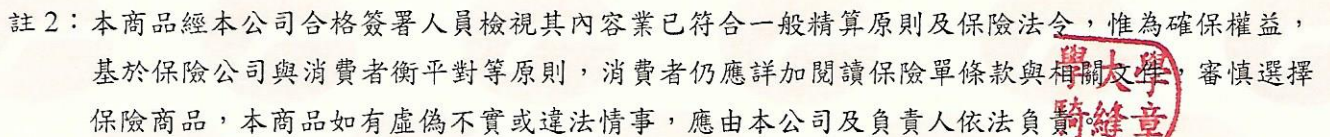 註2：本商品經本公司合格簽署人員檢視其內容業已符合一般精算原則及保險法令，惟為確保權益，
基於保險公司與消費者衡平對等原則，消費者仍應詳加閱讀保險單條款與相關文件，審慎選擇
保險商品，本商品如有虛偽不實或違法情事，應由本公司及負責人依法負責。
學大學
騎縫章